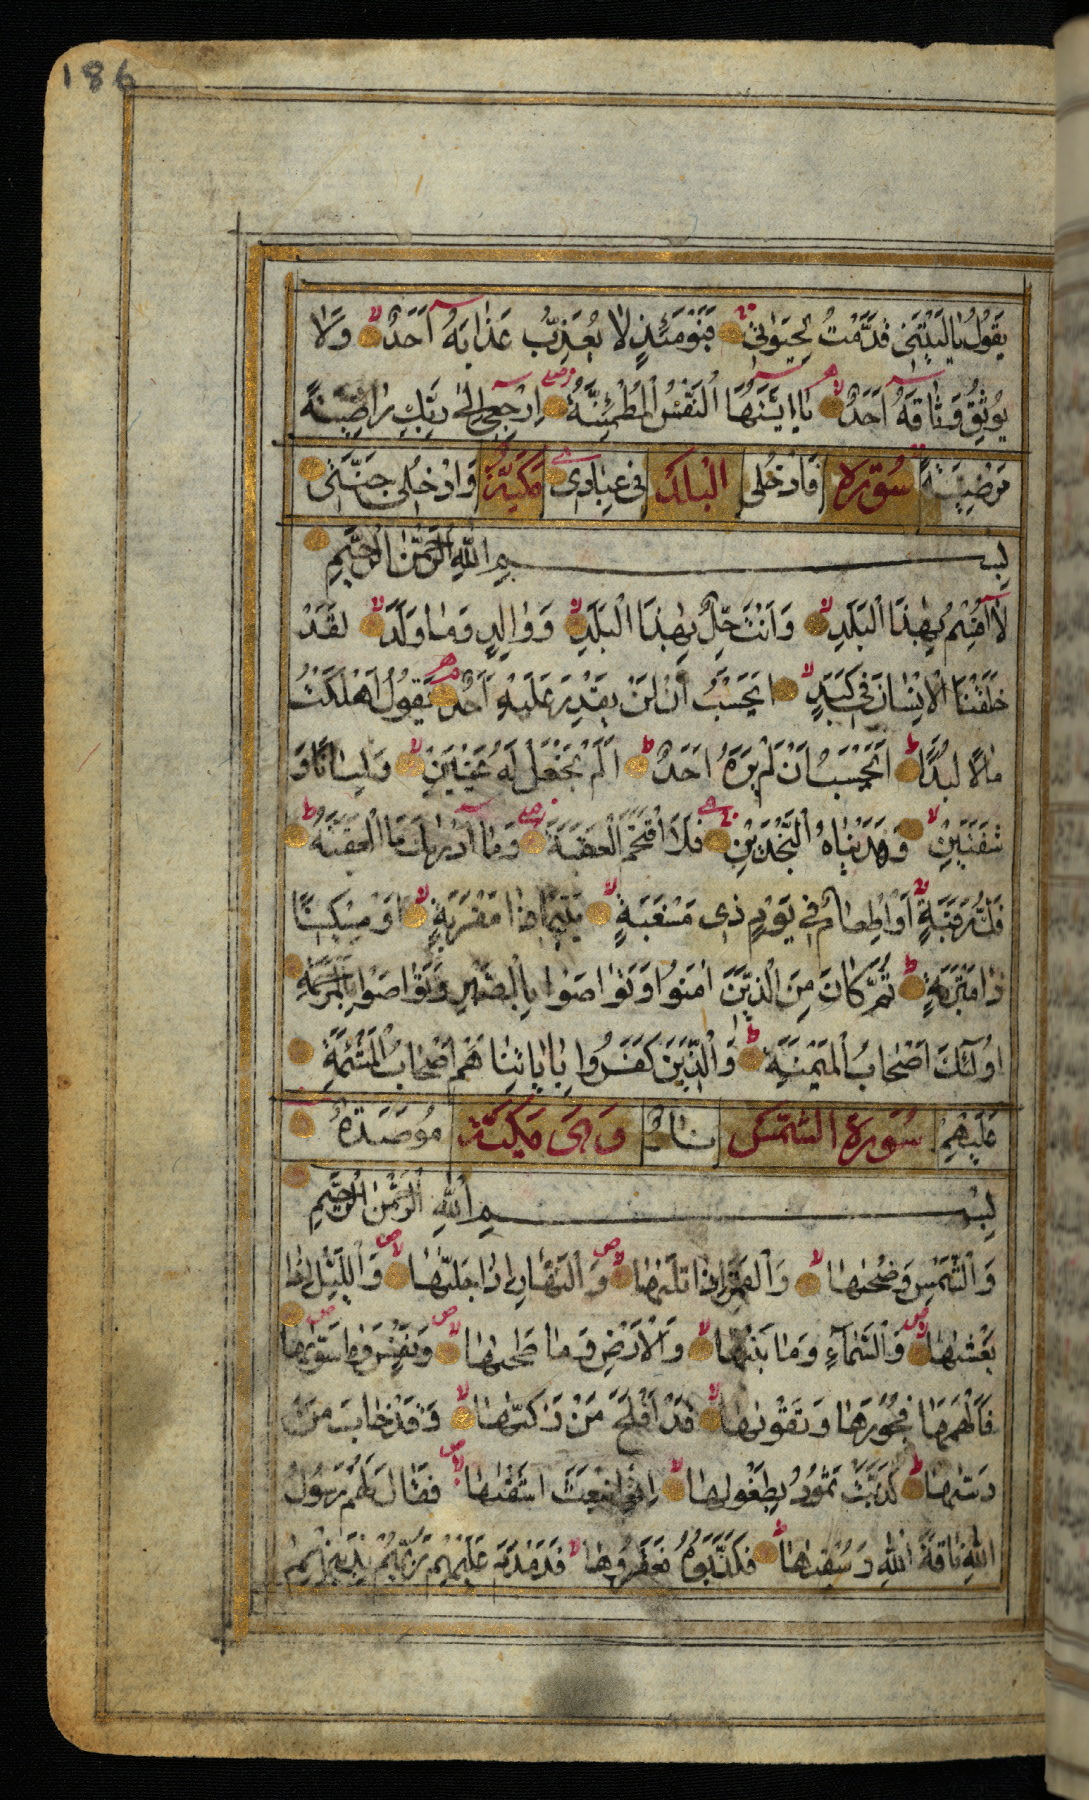 186
يَقُولُ يَا لَيْتَنِى قَدَّمْتُ لِحَيَوٰتِى فَيَوْمَئِذٍ لَا يُعَذِّبُ عَذَابَهُ اَحَدٌ وَلَا
يُوثِقُ وَثَاقَهُ اَحَدٌ يَا اَيَّتُهَا النَّفْسُ الْمُطْمَئِنَّةُ اِرْجِعِى اِلٰى رَبِّكِ رَاضِيَةً
مَرْضِيَّةً سُوْرَة فَادْخُلِى الْبَلَد فِى عِبَادِى مَكِّيَّة وَادْخُلِى جَنَّتِى
بِسْمِ اللهِ الرَّحْمٰنِ الرَّحِيمِ
لَا اُقْسِمُ بِهٰذَا الْبَلَدِ وَاَنْتَ حِلٌّ بِهٰذَا الْبَلَدِ وَوَالِدٍ وَمَا وَلَدَ لَقَدْ
خَلَقْنَا الْاِنْسَانَ فِى كَبَدٍ اَيَحْسَبُ اَنْ لَنْ يَقْدِرَ عَلَيْهِ اَحَدٌ يَقُولُ اَهْلَكْتُ
مَالًا لُبَدًا اَيَحْسَبُ اَنْ لَمْ يَرَهُ اَحَدٌ اَلَمْ نَجْعَلْ لَهُ عَيْنَيْنِ وَلِسَانًا وَ
شَفَتَيْنِ وَهَدَيْنَاهُ النَّجْدَيْنِ فَلَا اقْتَحَمَ الْعَقَبَةَ وَمَا اَدْرٰيكَ مَا الْعَقَبَةُ
فَكُّ رَقَبَةٍ اَوْ اِطْعَامٌ فِى يَوْمٍ ذِى مَسْغَبَةٍ يَتِيمًا ذَا مَقْرَبَةٍ اَوْ مِسْكِينًا
ذَا مَتْرَبَةٍ ثُمَّ كَانَ مِنَ الَّذِينَ اٰمَنُوا وَتَوَاصَوْا بِالصَّبْرِ وَتَوَاصَوْا بِالْمَرْحَمَةِ
اُولٰئِكَ اَصْحَابُ الْمَيْمَنَةِ وَالَّذِينَ كَفَرُوا بِاٰيَاتِنَا هُمْ اَصْحَابُ الْمَشْئَمَةِ
عَلَيْهِمْ سُوْرَة الشَّمْس نَارٌ وَهِىَ مَكِّيَّة مُؤْصَدَةٌ
بِسْمِ اللهِ الرَّحْمٰنِ الرَّحِيمِ
وَالشَّمْسِ وَضُحٰيهَا وَالْقَمَرِ اِذَا تَلٰيهَا وَالنَّهَارِ اِذَا جَلّٰيهَا وَالَّيْلِ اِذَا
يَغْشٰيهَا وَالسَّمَاءِ وَمَا بَنٰيهَا وَالْاَرْضِ وَمَا طَحٰيهَا وَنَفْسٍ وَمَا سَوّٰيهَا
فَاَلْهَمَهَا فُجُورَهَا وَتَقْوٰيهَا قَدْ اَفْلَحَ مَنْ زَكّٰيهَا وَقَدْ خَابَ مَنْ
دَسّٰيهَا كَذَّبَتْ ثَمُودُ بِطَغْوٰيهَا اِذِ انْبَعَثَ اَشْقٰيهَا فَقَالَ لَهُمْ رَسُولُ
اللهِ نَاقَةَ اللهِ وَسُقْيٰهَا فَكَذَّبُوهُ فَعَقَرُوهَا فَدَمْدَمَ عَلَيْهِمْ رَبُّهُمْ بِذَنْبِهِمْ